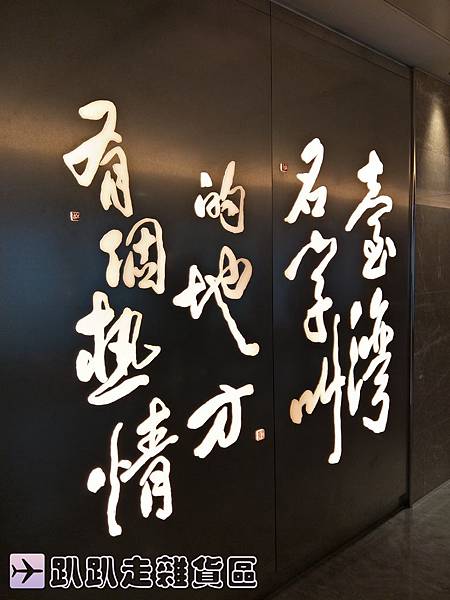 有個熱情
的地方
名字叫
臺灣
趴趴走雜貨區